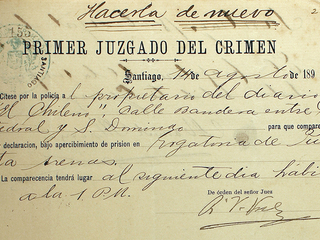 Hacerla de nuevo
2
155
SANTIAGO
PRIMER JUZGADO DEL CRIMEN
Santiago, 14 de agosto de 189
Cítese por la policía a l propietario del diario
"El Chileno", Calle Bandera entre
edral y S. Domingo para que compare
declaración, bajo apercibimiento de prision en rogatoria de
ta arenas.
La comparecencia tendrá lugar al siguiente dia hábi
a la 1 P.M.
De órden del señor Jues